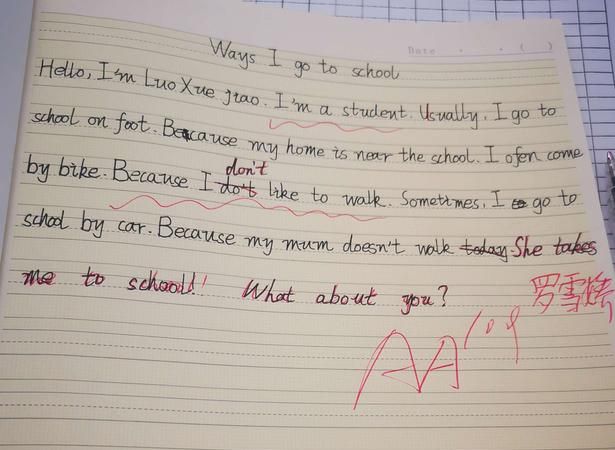 Date . . ( )
Ways I go to school
Hello, I'm Luo Xue jiao. I'm a student. Usually, I go to
school on foot. Because my home is near the school. I ofen come
don't
by bike. Because I do't like to walk. Sometimes, I go to
school by car. Because my mum doesn't walk today. She takes
me to school! What about you? 罗雪
AA